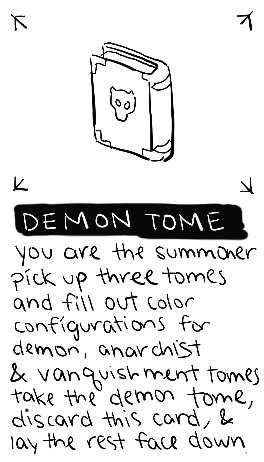 DEMON TOME
you are the summoner
pick up three tomes
and fill out color
configurations for
demon, anarchist
& vanquishment tomes
take the demon tome,
discard this card, &
lay the rest face down